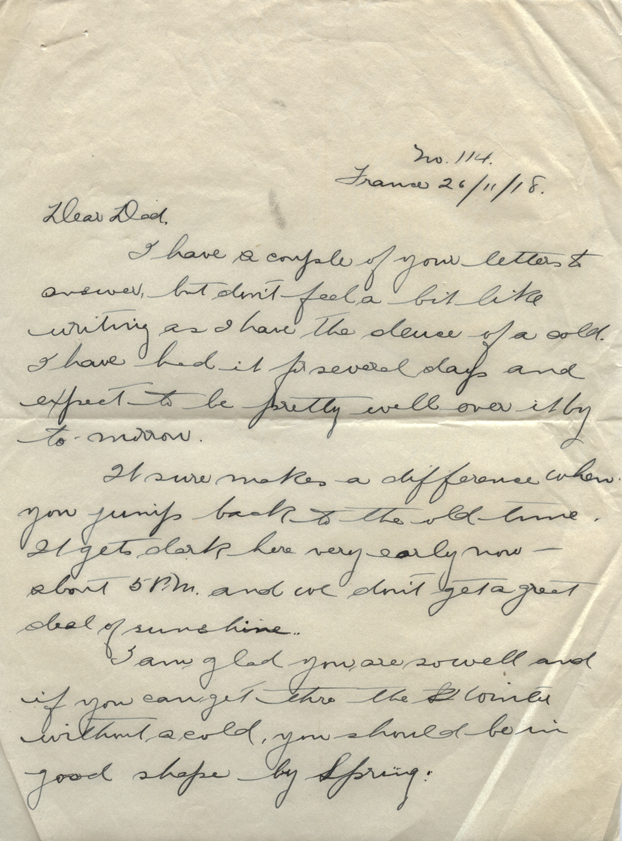 No. 114.
France 26/11/18.
Dear Dad,
I have a couple of your letters to
answer, but don't feel a bit like
writing as I have the deuce of a cold.
I have had it for several days and
expect to be pretty well over it by
to-morrow.
It sure makes a difference when
you jump back to the old time.
It gets dark here very early now —
about 5 P.M. and we don't get a great
deal of sunshine..
I am glad you are so well and
if you can get thro the Winter
without a cold, you should be in
good shape by Spring.